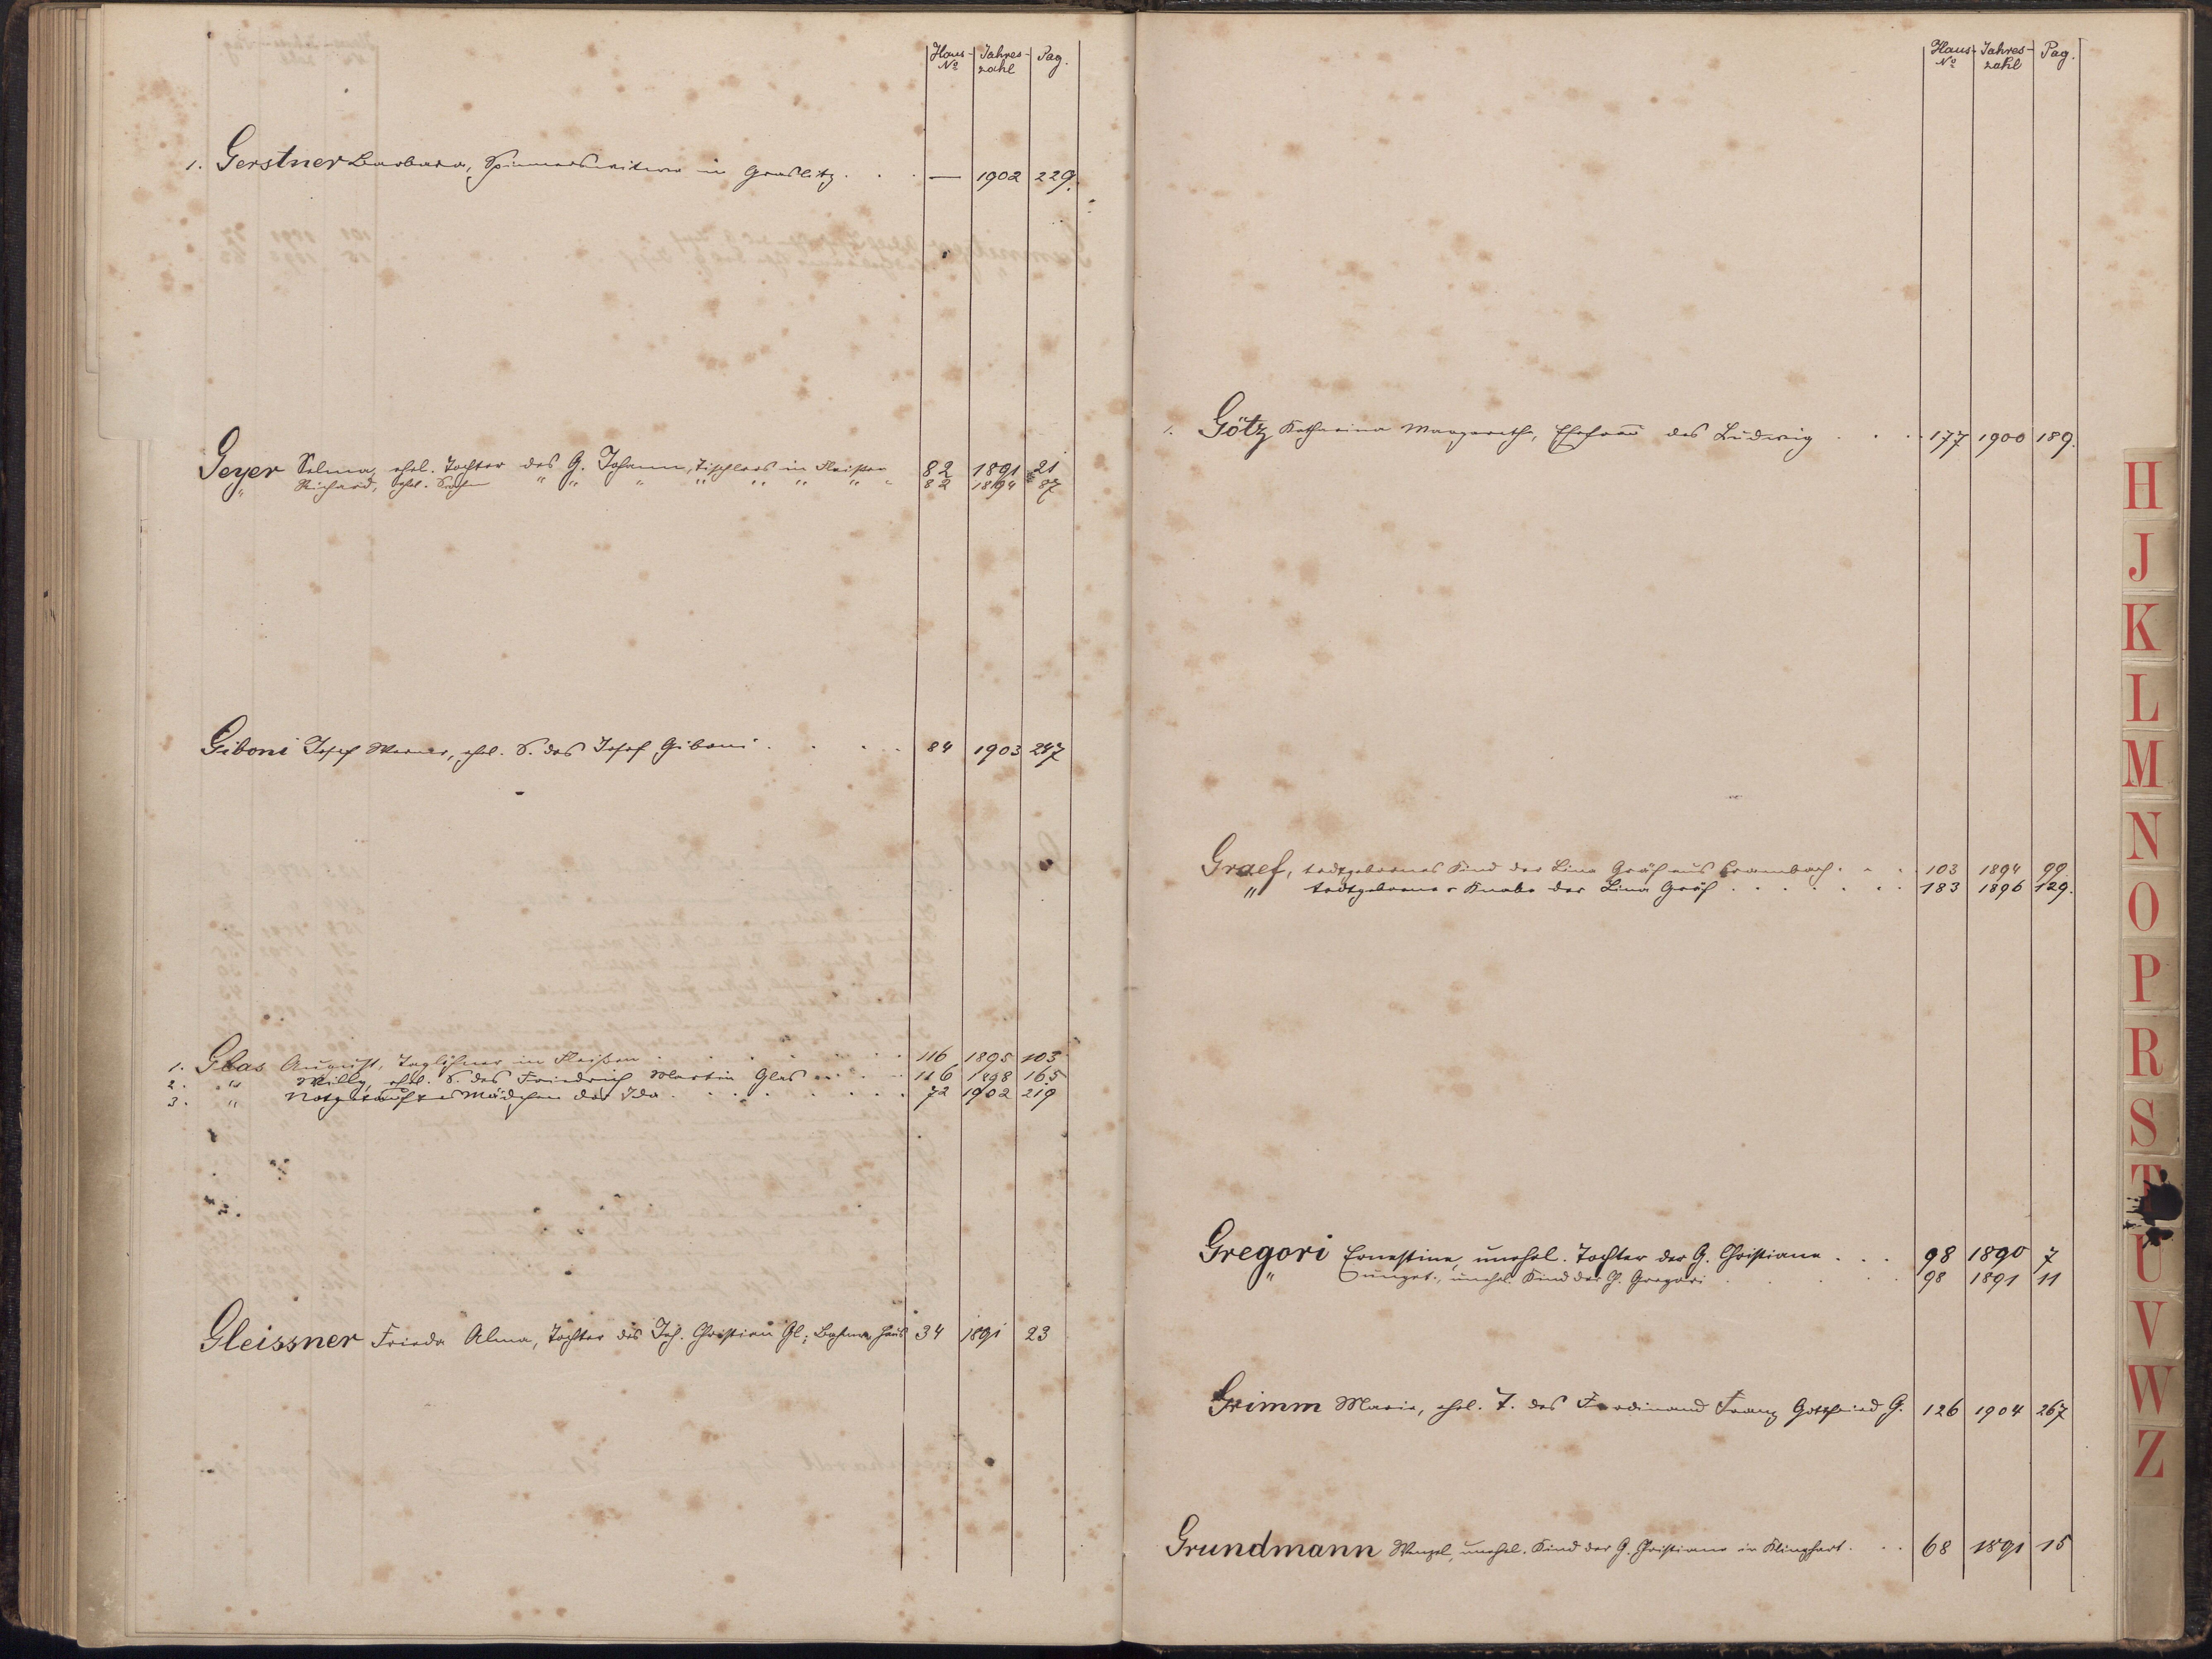 Haus- Jahres- Pag.
No zahl
1. Gerstner Barbara, Spinnerswitwe in Graslitz . . . — 1902 229.
Geyer Selma, ehel. Tochter des G. Johann, Tischlers in Fleißen 82 1891 21
" Richard, ehel. Sohn " " " " " " " 82 1894 87
Giboni Josef Werner, ehel. S. des Josef Giboni . . . . 84 1903 247
1. Glas August, Taglöhner in Fleißen . . . . . . 116 1895 103
2. " Willy, ehel. S. des Friedrich Martin Glas . . . . 116 1898 165
3. " Notgetauftes Mädchen der Ida . . . . . . . 72 1902 219
Gleissner Frieda Alma, Tochter des Joh. Christian Gl., 34 1891 23
Haus- Jahres- Pag.
No zahl
1. Götz Katharina Margaretha, Ehefrau des Ludwig . . . . 177 1900 189.
Graef, todtgebornes Kind der Lina Gräf aus Brambach . . . 103 1894 99.
" todtgeborner Knabe der Lina Gräf . . . . . . 183 1896 129.
Gregori Ernestine, unehel. Tochter der G. Christiana . . . 98 1890 7
" unget., unehel. Kind der Ch. Gregori . . . . 98 1891 11
Grimm Marie, ehel. T. des Ferdinand Franz Gottfried G. 126 1904 267
Grundmann Wenzel, unehel. Kind der G. Christiane in Klinghart . . . 68 1891 15
H
J
K
L
M
N
O
P
R
S
T
U
V
W
Z